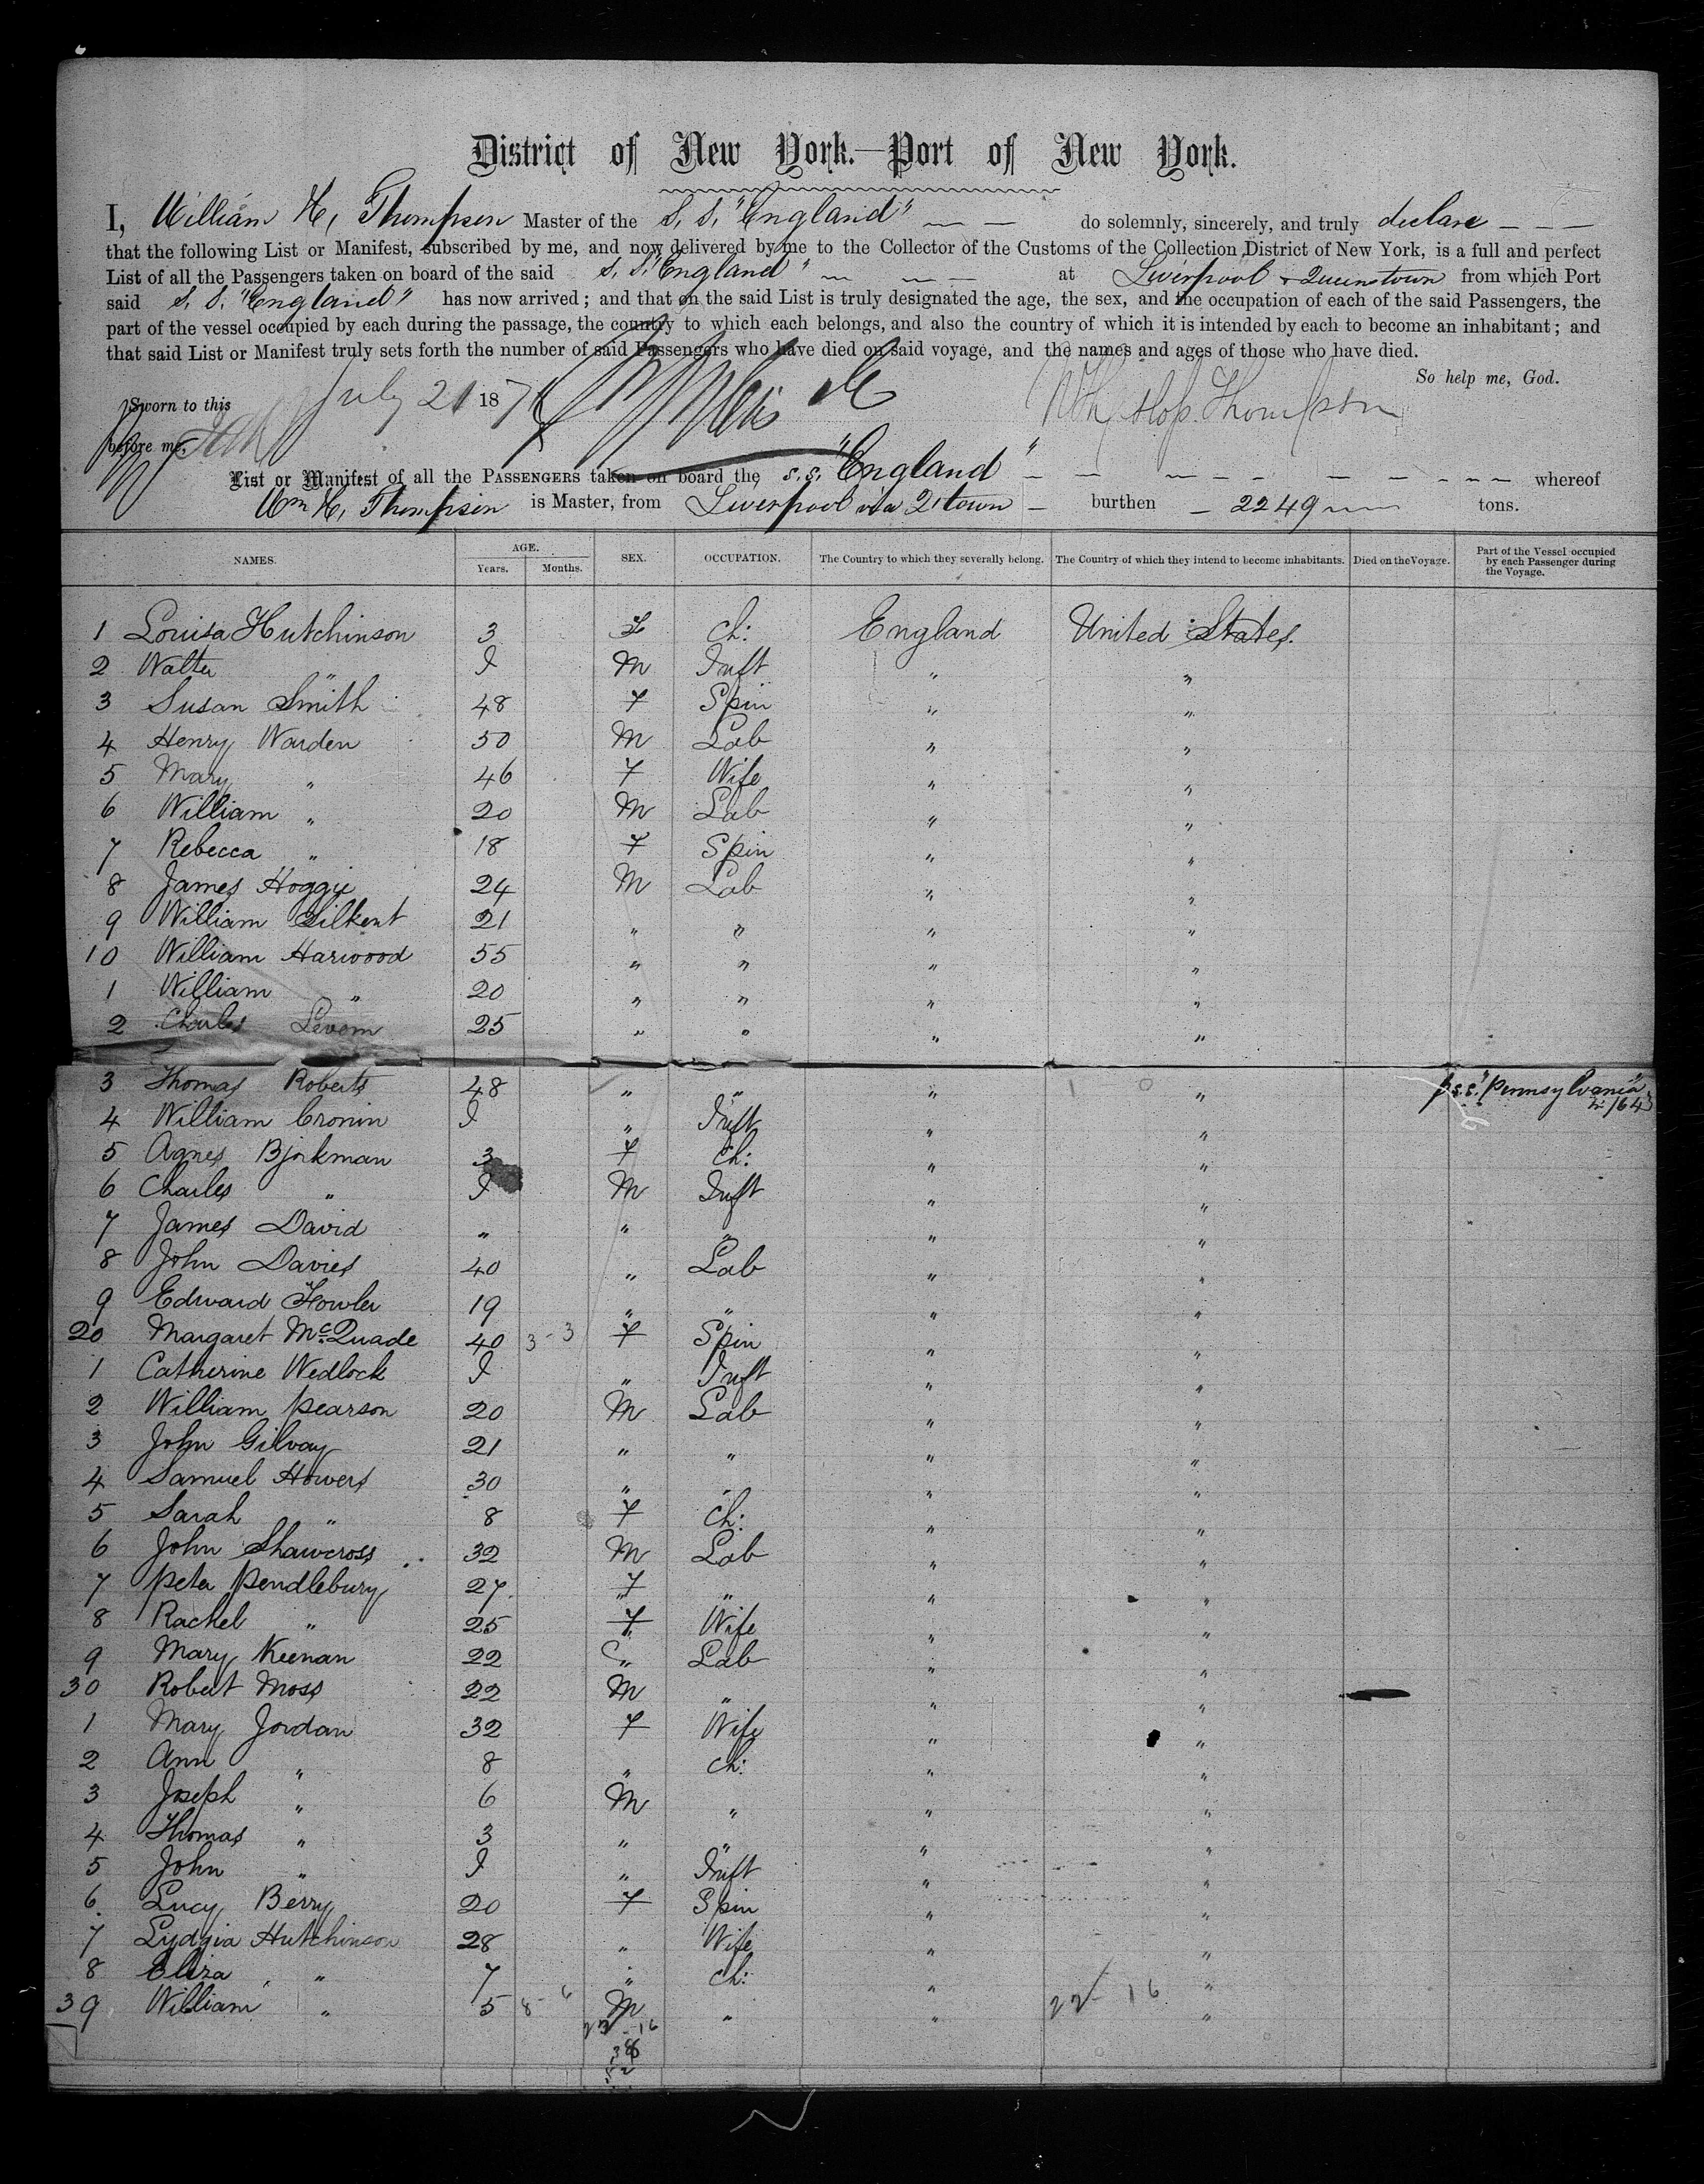 District of New York.—Port of New York.
I, William H. Thompson Master of the S. S. "England" — — do solemnly, sincerely, and truly declare — — —
that the following List or Manifest, subscribed by me, and now delivered by me to the Collector of the Customs of the Collection District of New York, is a full and perfect
List of all the Passengers taken on board of the said S. S. "England" — — — at Liverpool & Queenstown from which Port
said S. S. "England" has now arrived; and that on the said List is truly designated the age, the sex, and the occupation of each of the said Passengers, the
part of the vessel occupied by each during the passage, the country to which each belongs, and also the country of which it is intended by each to become an inhabitant; and
that said List or Manifest truly sets forth the number of said Passengers who have died on said voyage, and the names and ages of those who have died.
So help me, God.
Sworn to this July 21 187 Thompson
before me,
List or Manifest of all the PASSENGERS taken on board the s.s. "England" — — — — — — — — — whereof
Wm H. Thompson is Master, from Liverpool via Q'town — burthen — 2249 — tons.
NAMES. AGE. Years. Months. SEX. OCCUPATION. The Country to which they severally belong. The Country of which they intend to become inhabitants. Died on the Voyage. Part of the Vessel occupied by each Passenger during the Voyage.
1 Louisa Hutchinson 3 F Ch: England United States.
2 Walter " I M Inft " "
3 Susan Smith 48 F Spin " "
4 Henry Warden 50 M Lab " "
5 Mary " 46 F Wife " "
6 William " 20 M Lab " "
7 Rebecca " 18 F Spin " "
8 James Hoggie 24 M Lab " "
9 William Silkent 21 " " " "
10 William Harwood 55 " " " "
1 William " 20 " " " "
2 Charles Levem 25 " " " "
3 Thomas Roberts 48 " " " " p s.s. "Pennsylvania"
4 William Cronin I " Inft " "
5 Agnes Bjorkman 3 F Ch: " "
6 Charles " I M Inft " "
7 James David " " " " "
8 John Davies 40 " Lab " "
9 Edward Fowler 19 " " " "
20 Margaret McQuade 40 3 - 3 F Spin " "
1 Catherine Wedlock I " Inft " "
2 William Pearson 20 M Lab " "
3 John Gilvay 21 " " " "
4 Samuel Howers 30 " " " "
5 Sarah " 8 F Ch: " "
6 John Shawcross 32 M Lab " "
7 Peter Pendlebury 27 F " " "
8 Rachel " 25 F Wife " "
9 Mary Keenan 22 " Lab " "
30 Robert Moss 22 M " " "
1 Mary Jordan 32 F Wife " "
2 Ann " 8 " Ch: " "
3 Joseph " 6 M " " "
4 Thomas " 3 " " " "
5 John " I " Inft " "
6 Lucy Berry 20 F Spin " "
7 Lydgia Hutchinson 28 " Wife " "
8 Eliza " 7 " Ch: " "
39 William " 5 8 - 6 M " " 22 - 16 "
22 - 16
38